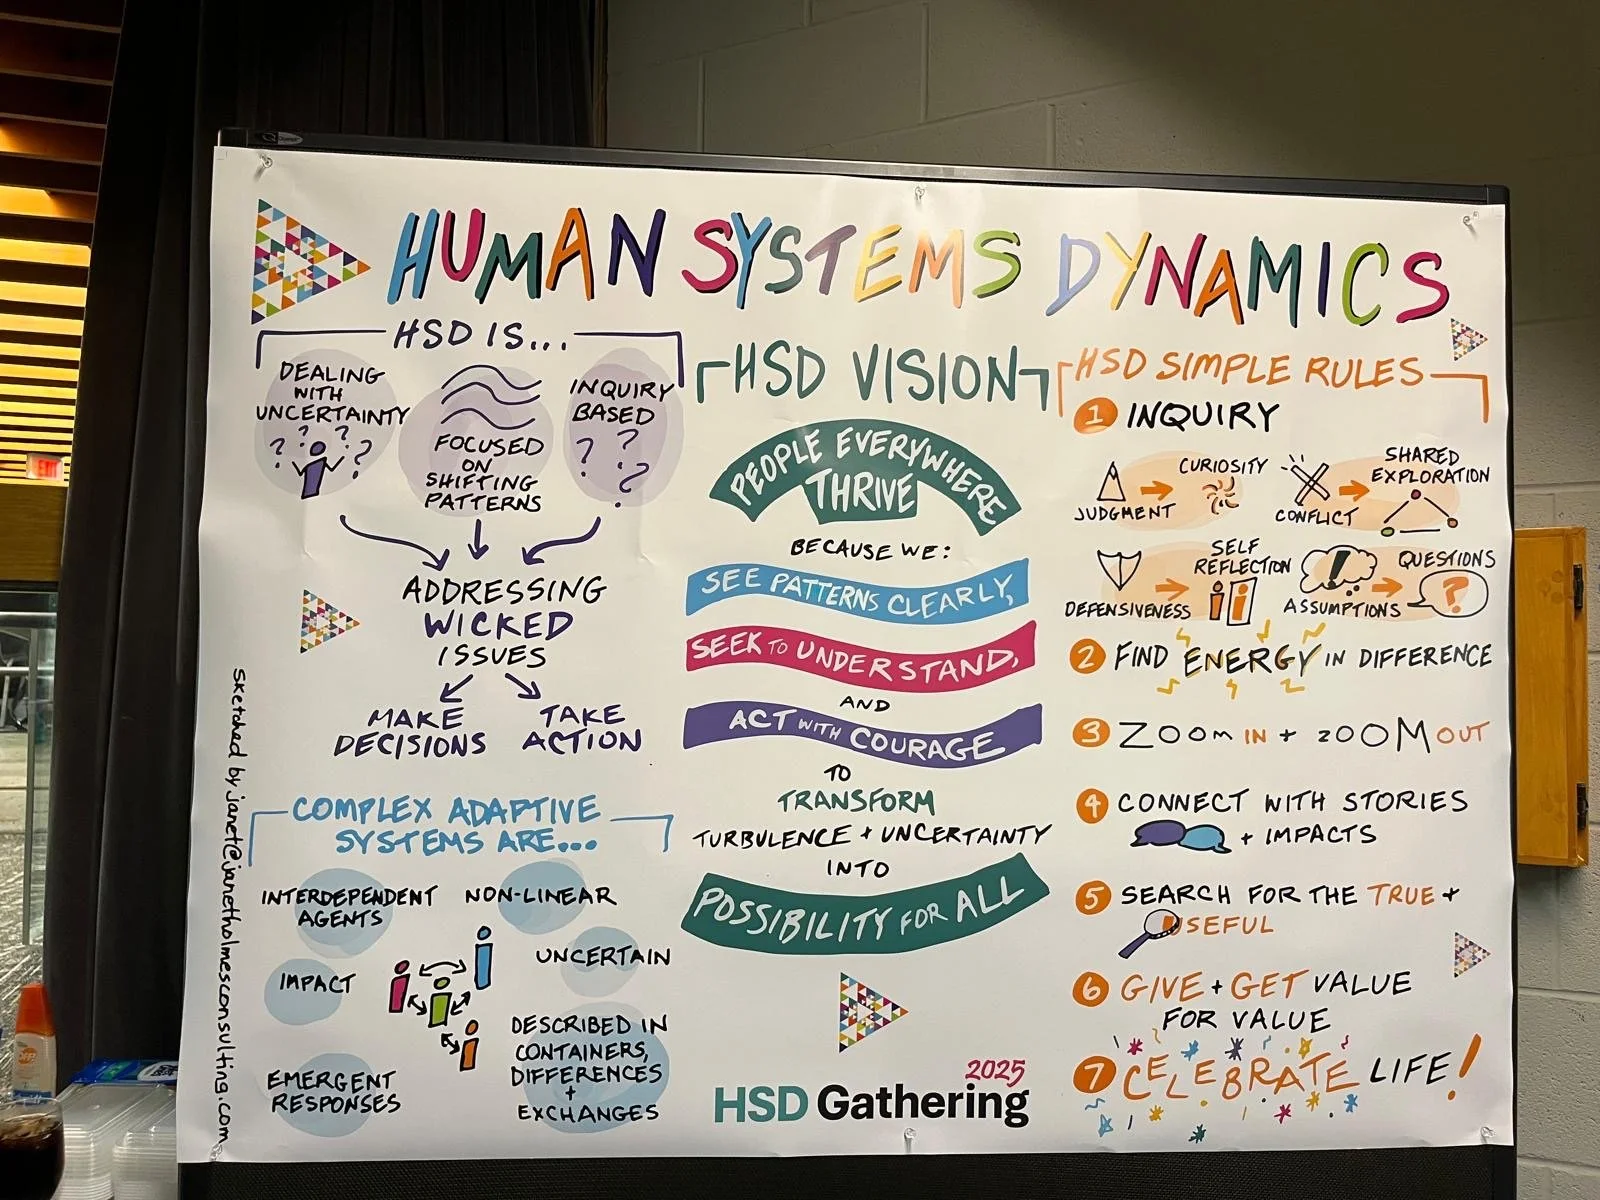 HUMAN SYSTEMS DYNAMICS
HSD IS...
DEALING
WITH
UNCERTAINTY
? ? ? ? ?
FOCUSED
ON
SHIFTING
PATTERNS
INQUIRY
BASED
? ? ? ?
ADDRESSING
WICKED
ISSUES
MAKE
DECISIONS
TAKE
ACTION
COMPLEX ADAPTIVE
SYSTEMS ARE...
INTERDEPENDENT
AGENTS
NON-LINEAR
IMPACT
UNCERTAIN
EMERGENT
RESPONSES
DESCRIBED IN
CONTAINERS,
DIFFERENCES
+
EXCHANGES
Sketched by janet@janetholmesconsulting.com
HSD VISION
PEOPLE EVERYWHERE
THRIVE
BECAUSE WE:
SEE PATTERNS CLEARLY,
SEEK TO UNDERSTAND,
AND
ACT WITH COURAGE
TO
TRANSFORM
TURBULENCE + UNCERTAINTY
INTO
POSSIBILITY FOR ALL
2025
HSD Gathering
HSD SIMPLE RULES
1 INQUIRY
JUDGMENT
CURIOSITY
CONFLICT
SHARED
EXPLORATION
DEFENSIVENESS
SELF
REFLECTION
!
ASSUMPTIONS
QUESTIONS
?
2 FIND ENERGY IN DIFFERENCE
3 ZOOM IN + ZOOM OUT
4 CONNECT WITH STORIES
+ IMPACTS
5 SEARCH FOR THE TRUE +
USEFUL
6 GIVE + GET VALUE
FOR VALUE
7 CELEBRATE LIFE!
EXIT
OFF!